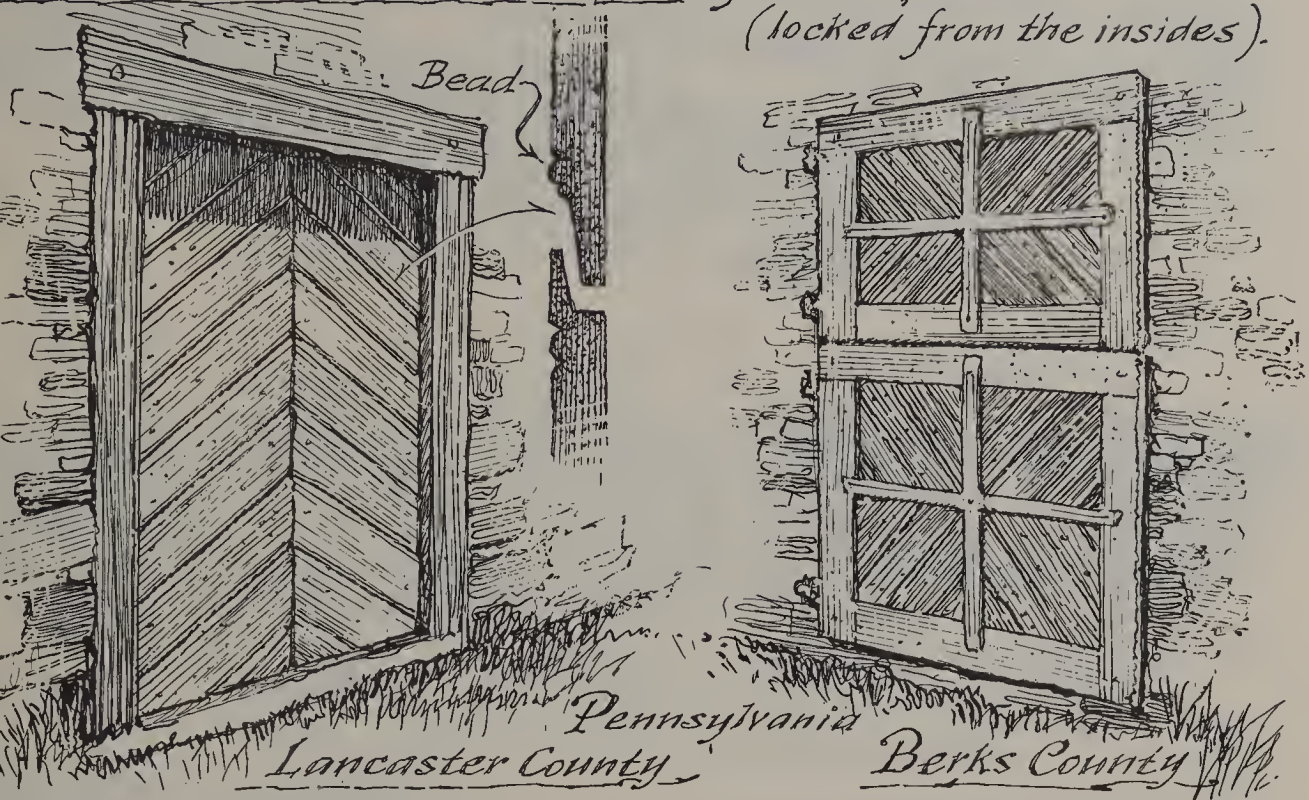 (locked from the insides).
Bead
Pennsylvania
Lancaster County
Berks County